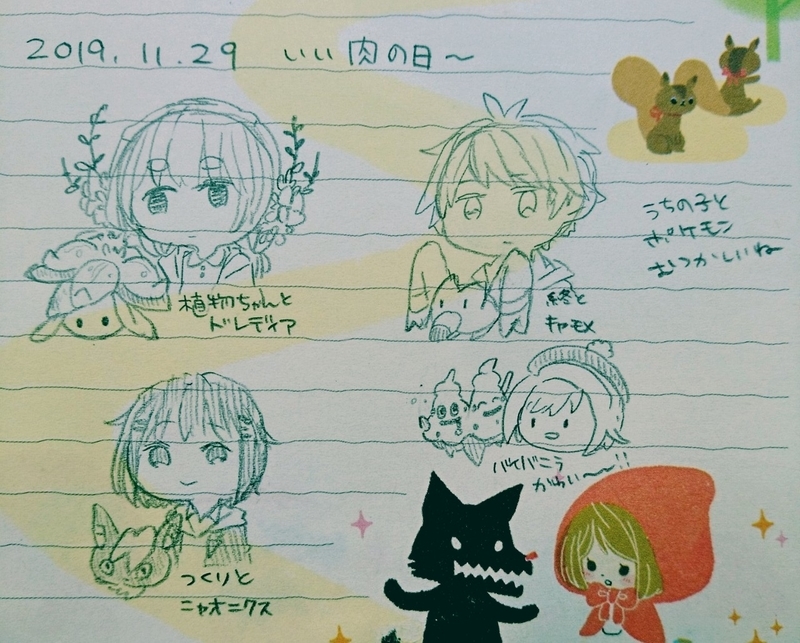 2019.11.29 いい肉の日~
うちの子と
ポケモン
むつかしいね
植物ちゃんと
ドレディア
終と
キャモメ
バイバニラ
かわい~~!!
つくりと
ニャオニクス